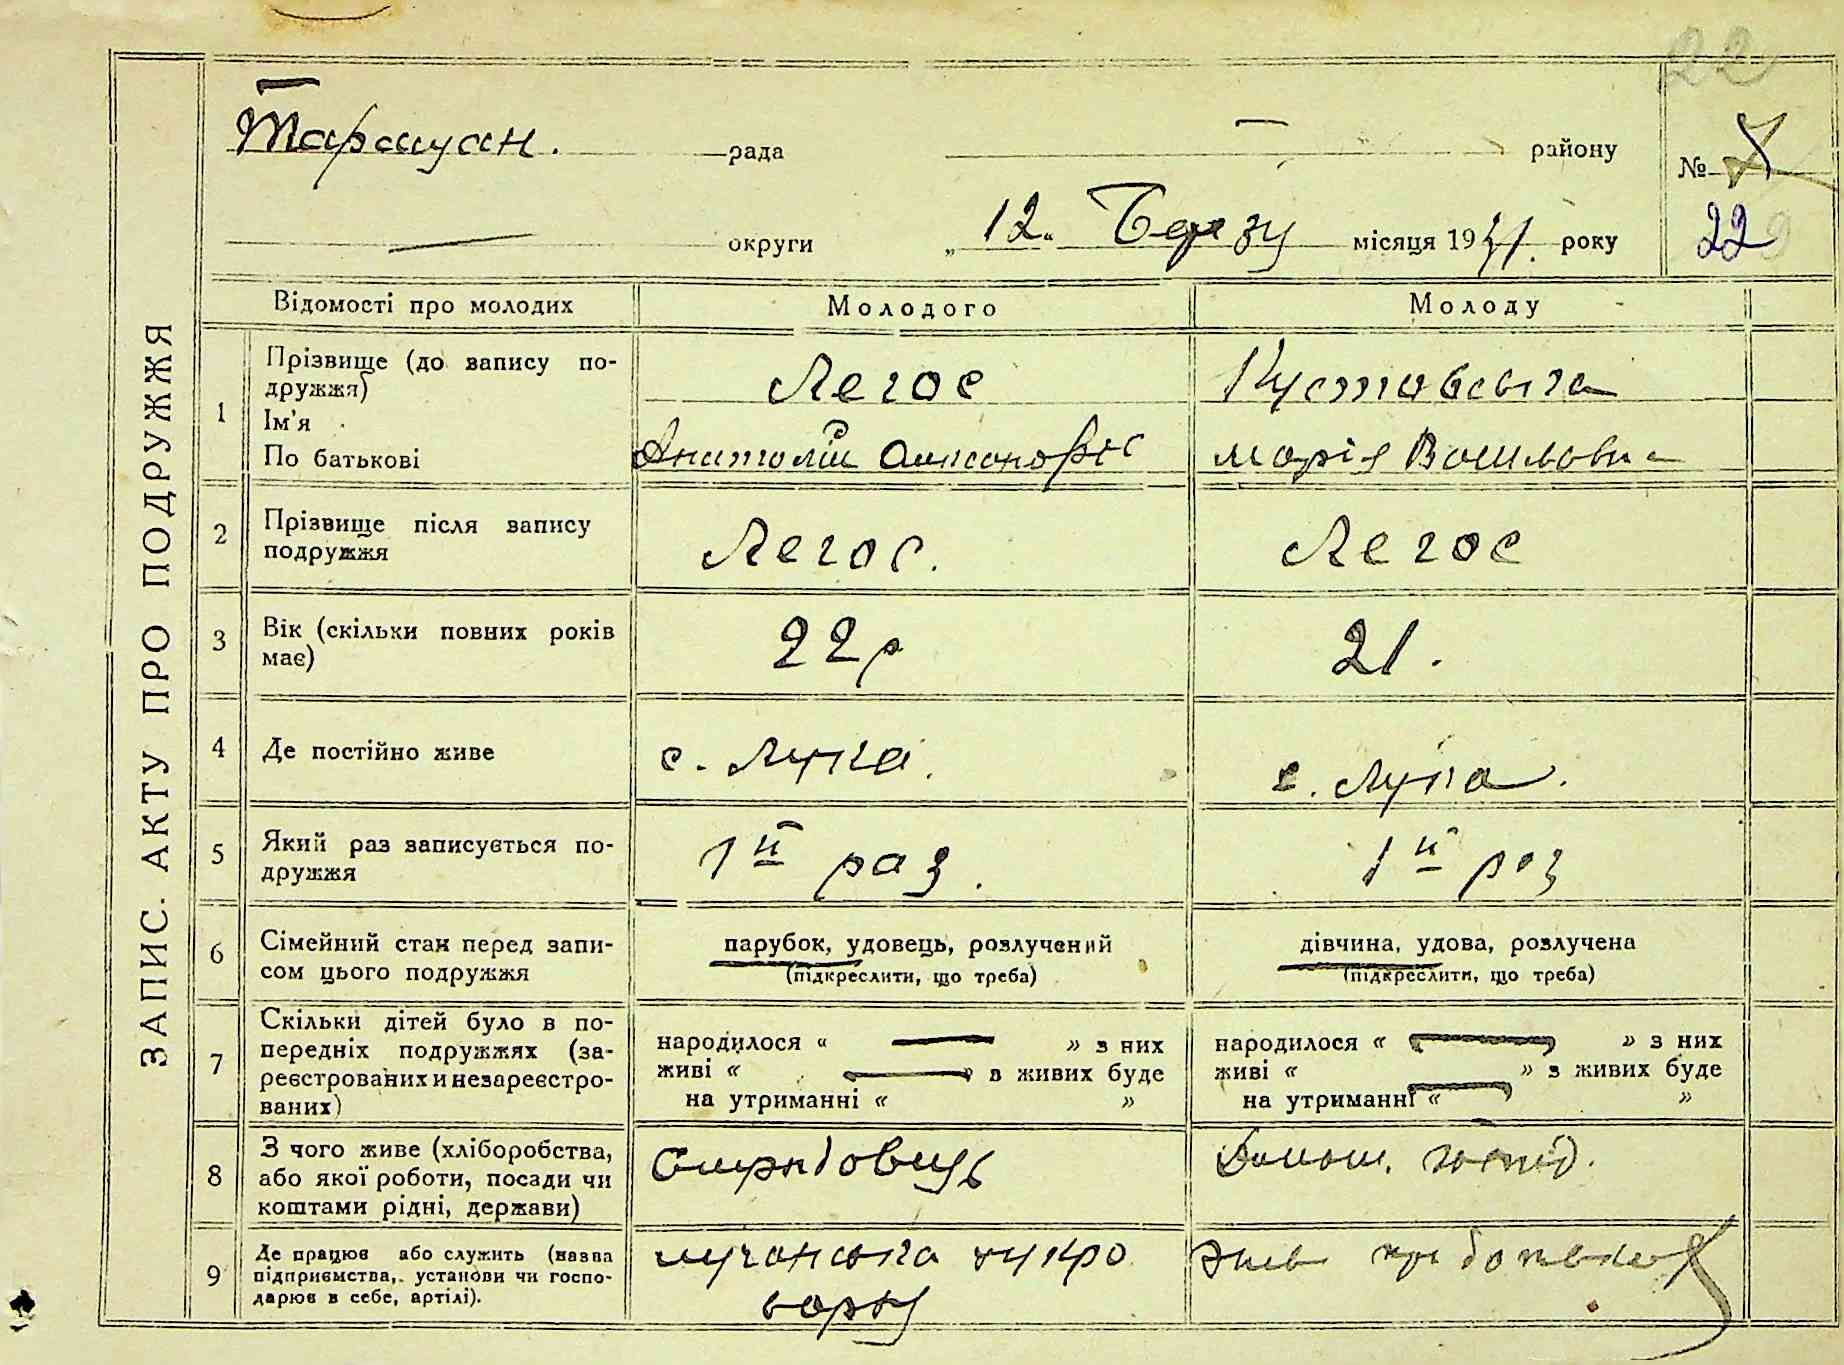 22
ЗАПИС. АКТУ ПРО ПОДРУЖЖЯ
рада району
№ 7
округи „ 12 " Березу місяця 1931. року
22
Відомості про молодих Молодого Молоду
1 Прізвище (до запису по-
дружжя) Легос Кустовська
Ім'я
По батькові Анатолій Марія
2 Прізвище після запису
подружжя Легос. Легос
3 Вік (скільки повних років
має) 22 р 21.
4 Де постійно живе с. Лука. с. Лука.
5 Який раз записується по-
дружжя 1й раз. 1й раз
6 Сімейний стан перед запи-
сом цього подружжя парубок, удовець, розлучений дівчина, удова, розлучена
(підкреслити, що треба) (підкреслити, що треба)
7 Скільки дітей було в по-
передніх подружжях (за-
реєстрованих и незареєстро-
ваних) народилося « » з них народилося « » з них
живі « » в живих буде живі « » з живих буде
на утриманні « » на утриманні « »
8 З чого живе (хліборобства,
або якої роботи, посади чи
коштами рідні, держави) Домаш.
9 Де працює або служить (назва
підприємства,. установи чи госпо-
дарює в себе, артілі). цукро